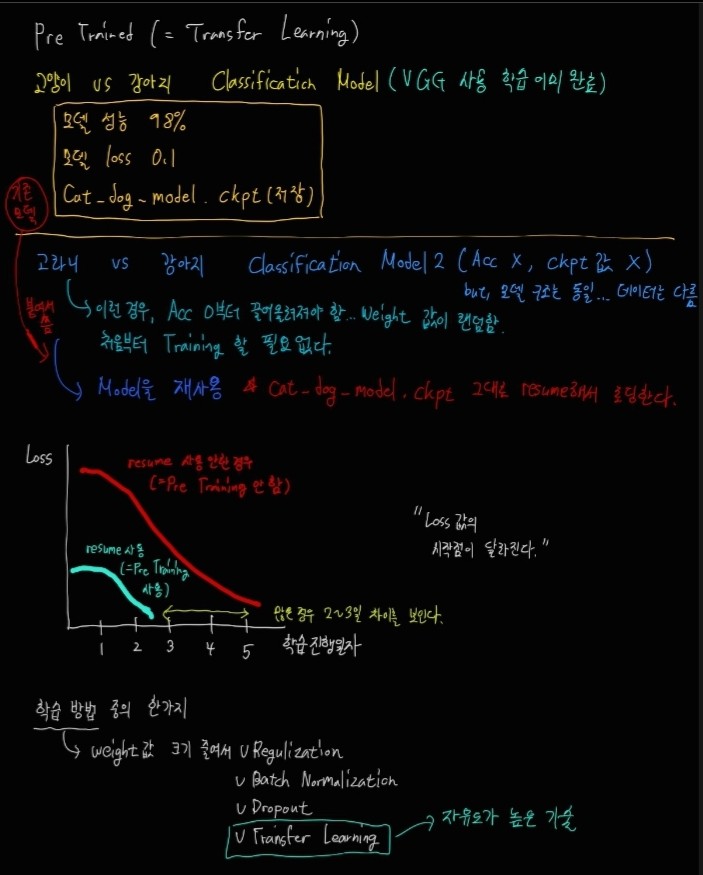 Pre Trained (= Transfer Learning)
고양이 vs 강아지 Classification Model (VGG 사용 학습 이미 완료)
모델 성능 98%
모델 loss 0.1
Cat_dog_model.ckpt (저장)
기존
모델
고라니 vs 강아지 Classification Model 2 (Acc X, ckpt 값 X)
but, 모델 구조는 동일... 데이터는 다름
이런 경우, Acc 0부터 끌어올려져야 함... Weight 값이 랜덤함.
처음부터 Training 할 필요없다.
Model을 재사용 * Cat_dog_model.ckpt 그대로 resume해서 로딩한다.
Loss
resume 사용 안한 경우
(=Pre Training 안 함)
"Loss 값의
시작점이 달라진다."
resume 사용
(=Pre Training
사용)
많은 경우 2~3일 차이를 보인다.
1 2 3 4 5 학습 진행일자
학습 방법 중의 한가지
weight 값 크기 줄여서 v Regulization
v Batch Normalization
v Dropout
v Transfer Learning 자유도가 높은 기술